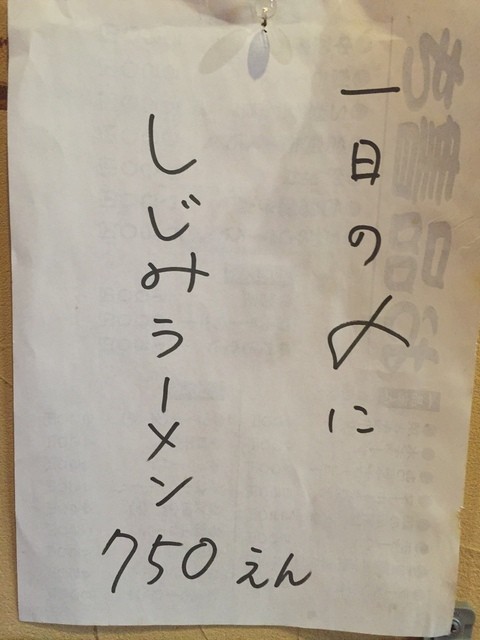 一日の〆に
しじみラーメン
750えん